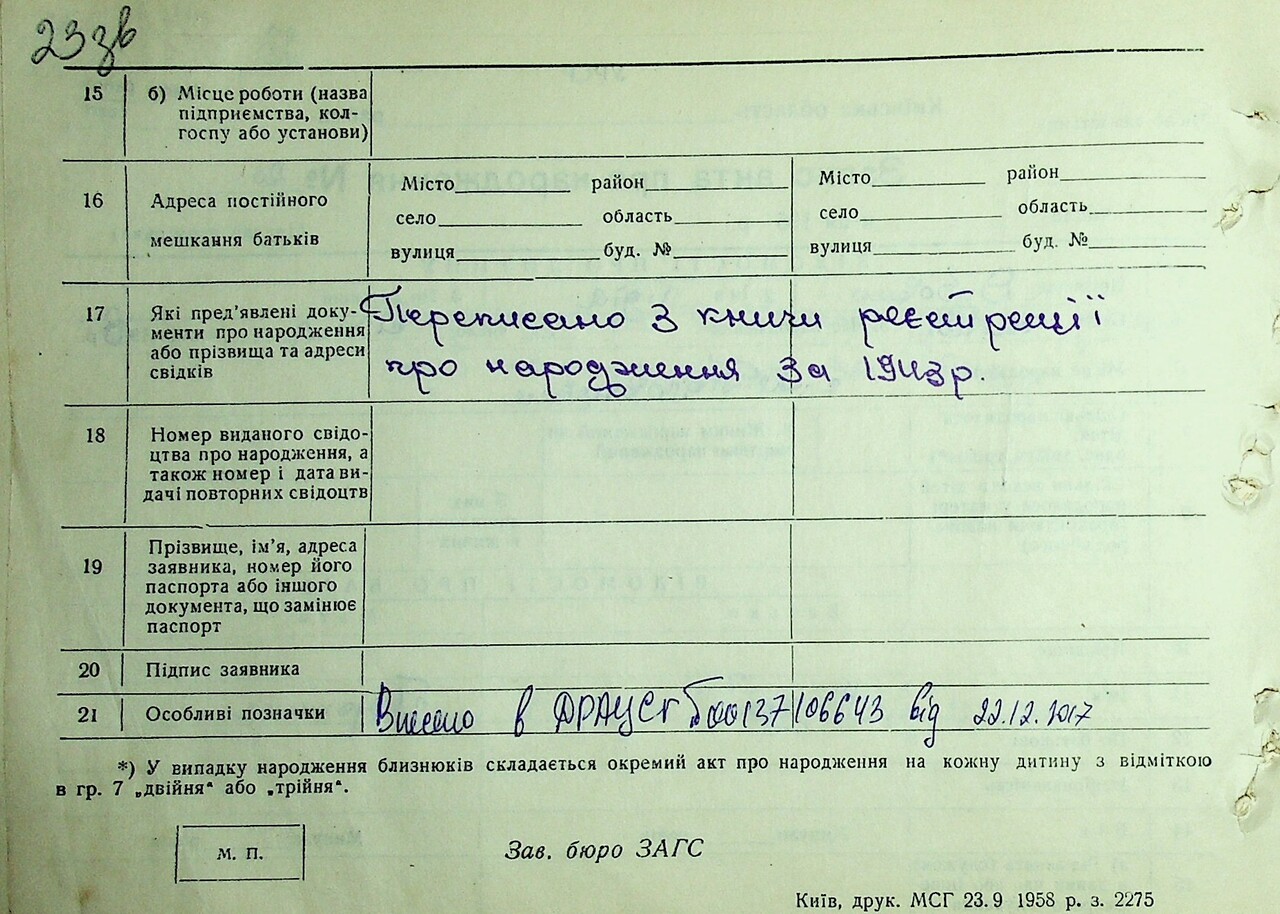 23 зв
15 б) Місце роботи (назва
підприємства, кол-
госпу або установи)
16 Адреса постійного
мешкання батьків
Місто район
село область
вулиця буд. №
Місто район
село область
вулиця буд. №
17 Які пред’явлені доку-
менти про народження
або прізвища та адреси
свідків
Переписано з книги реєстрації
про народження за 1943р.
18 Номер виданого свідо-
цтва про народження, а
також номер і дата ви-
дачі повторних свідоцтв
19 Прізвище, ім’я, адреса
заявника, номер його
паспорта або іншого
документа, що замінює
паспорт
20 Підпис заявника
21 Особливі позначки Внесено в ДРАЦСГ 00137106643 від 22.12.2017
*) У випадку народження близнюків складається окремий акт про народження на кожну дитину з відміткою
в гр. 7 „двійня“ або „трійня“.
М. П.
Зав. бюро ЗАГС
Київ, друк. МСГ 23.9 1958 р. з. 2275